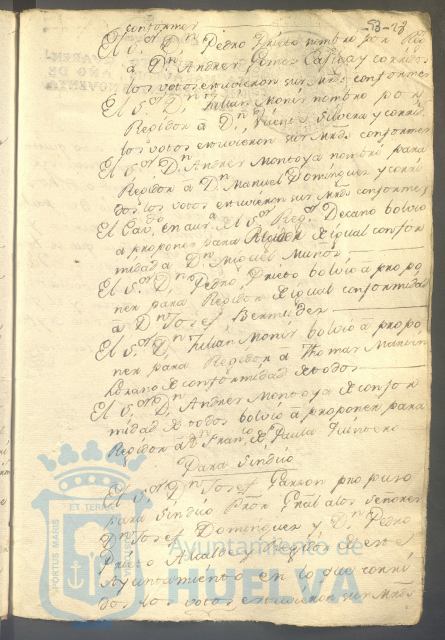 conformes
53-28
El S.or D.n Pedro Prieto nombro por Re
a D.n Andres Gomez y corridos
los votos estuvieron sus Mrds conformes
El S.or D.n Julian Monis nombro por
Regidor a D.n Vicente Silvera y corri
los votos estuvieron sus Mrds conformes
El S.or D.n Andres Montoya nombró para
Regidor a D.n Manuel Dominguez y corri
dos los votos estuvieron sus Mrds conformes
El Cav.do El S.or Reg.or Decano bolvio
a proponer para Regidor de igual confor
midad a D.n Miguel Muñoz
El S.or D.n Pedro Prieto bolvio a propo
ner para Regidor de igual conformidad
a D.n Josef Bermudez
El S.or D.n Julian Monis bolvió a propo
ner para Regidor a Thomas Martin
Lozano de conformidad de todos
El S.or D.n Andres Montoya de confor
midad de todos bolvió a proponer para
Regidor a D.n Fran.co de Paula
Para Sindico
El S.or D.n Josef Garzon propuso
para Sindico Pror Gral a los Señores
D.n Josef Dominguez y D.n Pedro
Prieto Alcalde y Regidor de este
Ayuntamiento en lo que corri
dos los votos estuvieron sus Mrds
ET TERRAE
PORTUS MARIS
CUSTODIA
Ayuntamiento de
HUELVA